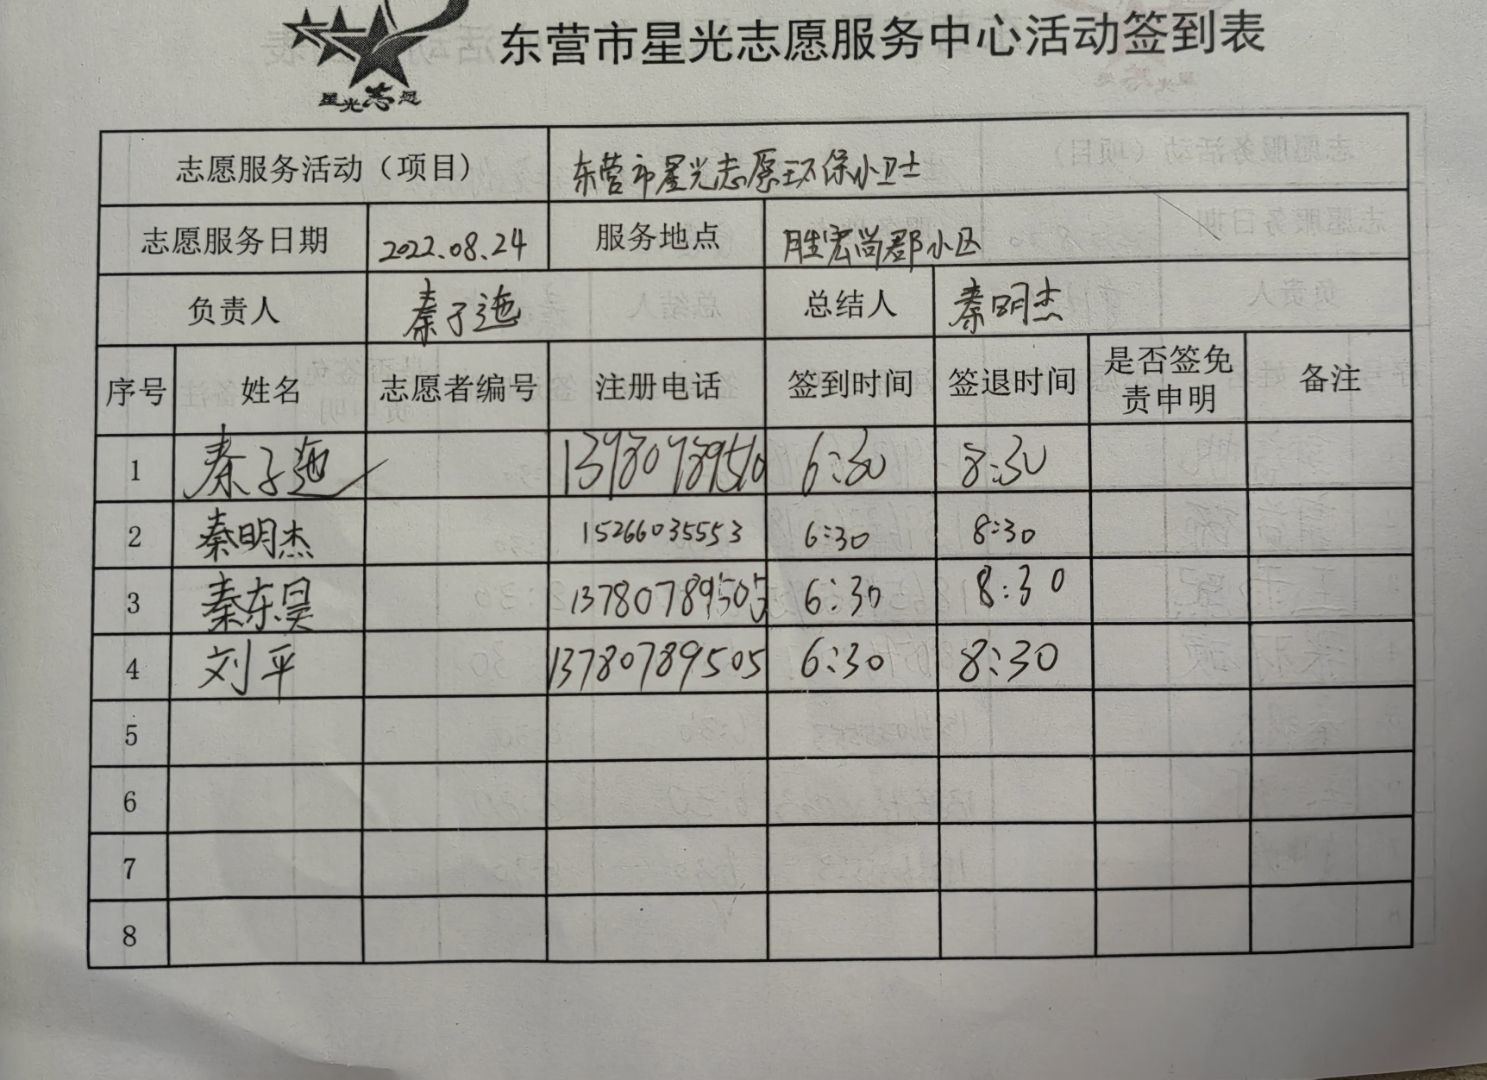 东营市星光志愿服务中心活动签到表
星光志愿
志愿服务活动（项目） 东营市星光志愿环保小卫士
志愿服务日期 2022.08.24 服务地点 胜宏尚郡小区
负责人 秦子迤 总结人 秦明杰
序号 姓名 志愿者编号 注册电话 签到时间 签退时间 是否签免责申明 备注
1 秦子迤 6:30 8:30
2 秦明杰 15266035553 6:30 8:30
3 秦东昊 13780789505 6:30 8:30
4 刘平 13780789505 6:30 8:30
5
6
7
8